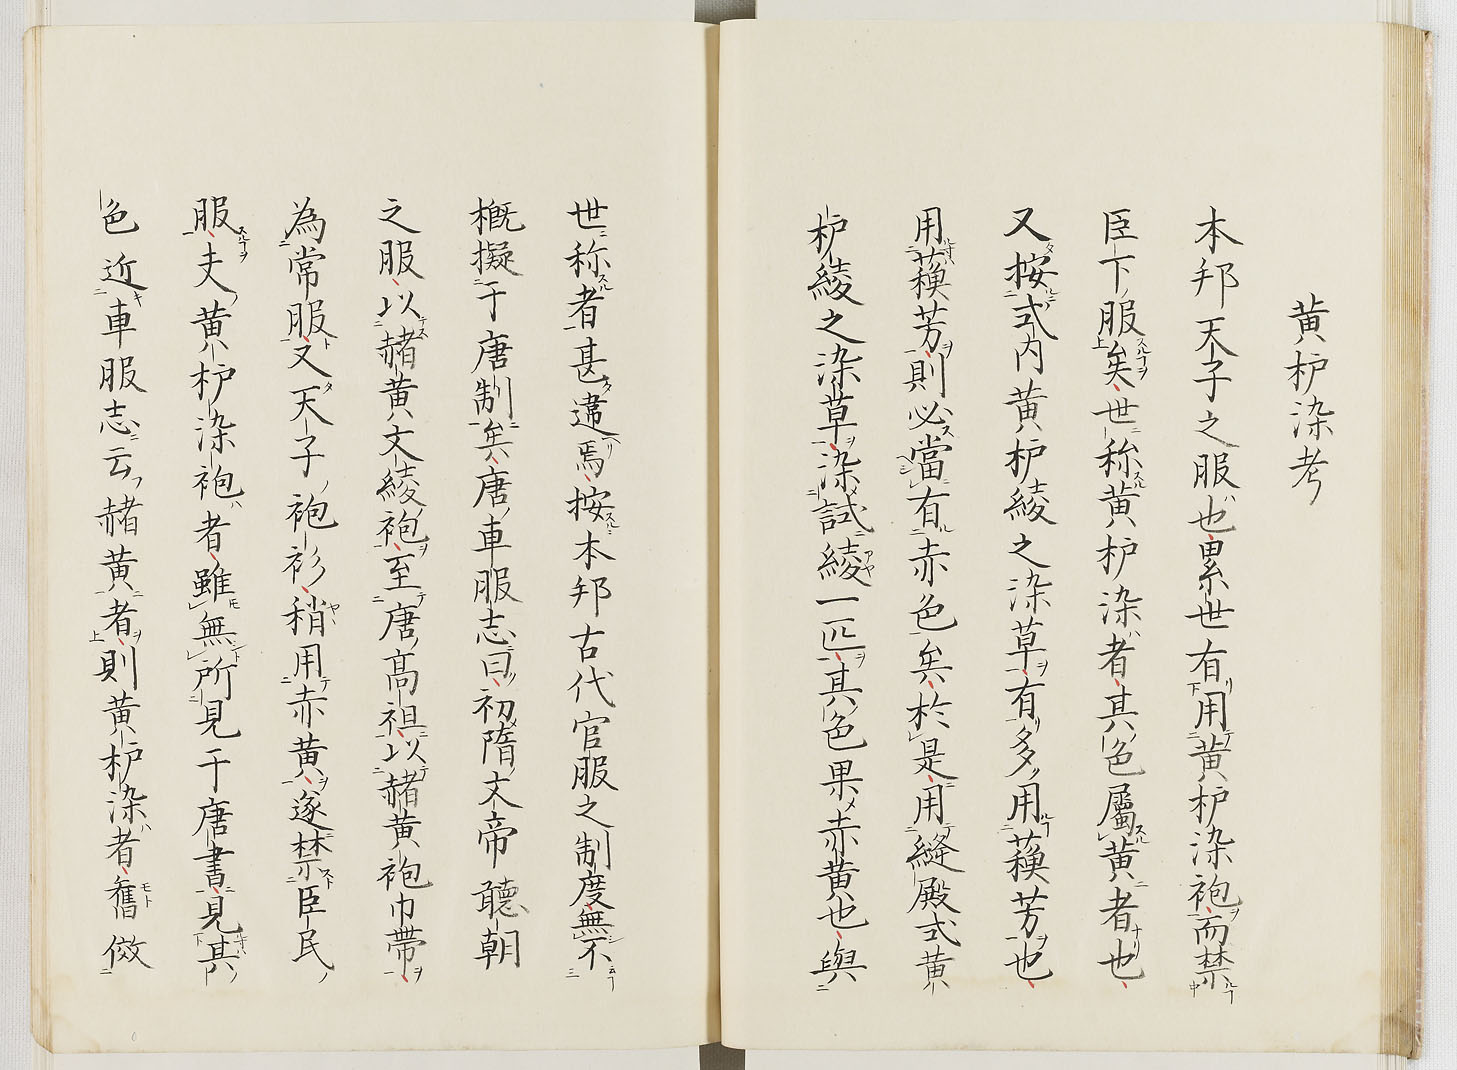 黄栌染考
本邦天子之服也累世有用黄栌染袍而禁
臣下服矣世称黄栌染者其色屬黄者也
又按式内黄栌綾之染草有多用蘓芳也
用蘓芳則必當有赤色矣於是用縫殿式黄
栌綾之染草染試綾一匹其色果赤黄也與
世称者甚違焉按本邦古代官服之制度無不
概擬于唐制矣唐車服志曰初隋文帝聽朝
之服以赭黄文綾袍至唐高祖以赭黄袍巾帶
為常服又天子袍衫稍用赤黄遂禁臣民
服夫黄栌染袍者雖無所見于唐書見其
色近車服志云赭黄者則黄栌染者舊倣